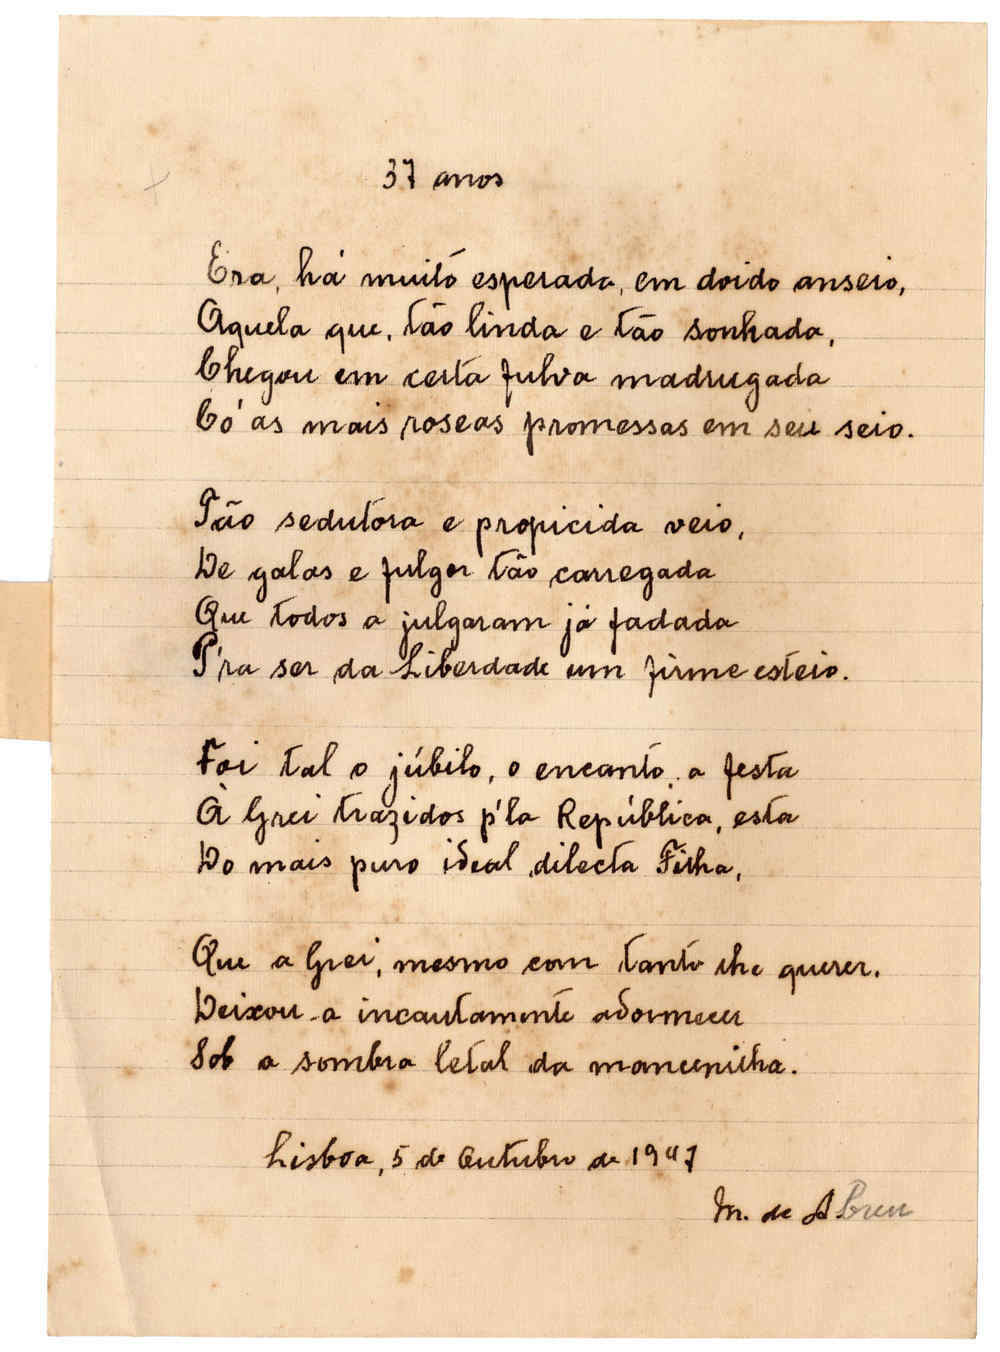 37 anos
Era, há muito esperada, em doido anseio,
Aquela que, tão linda e tão sonhada,
Chegou em certa fulva madrugada
Có'as mais roseas promessas em seu seio.
Tão sedutora e propicida veio,
De galas e fulgor tão carregada
Que todos a julgaram já fadada
P'ra ser da Liberdade um firme esteio.
Foi tal o júbilo, o encanto, a festa
À Grei trazidos p'la República, esta
Do mais puro ideal dilecta Filha,
Que a Grei, mesmo com tanto lhe querer,
Deixou-a incautamente adormecer
Sob a sombra letal da mancenilha.
Lisboa, 5 de Outubro de 1947
M. de Abreu